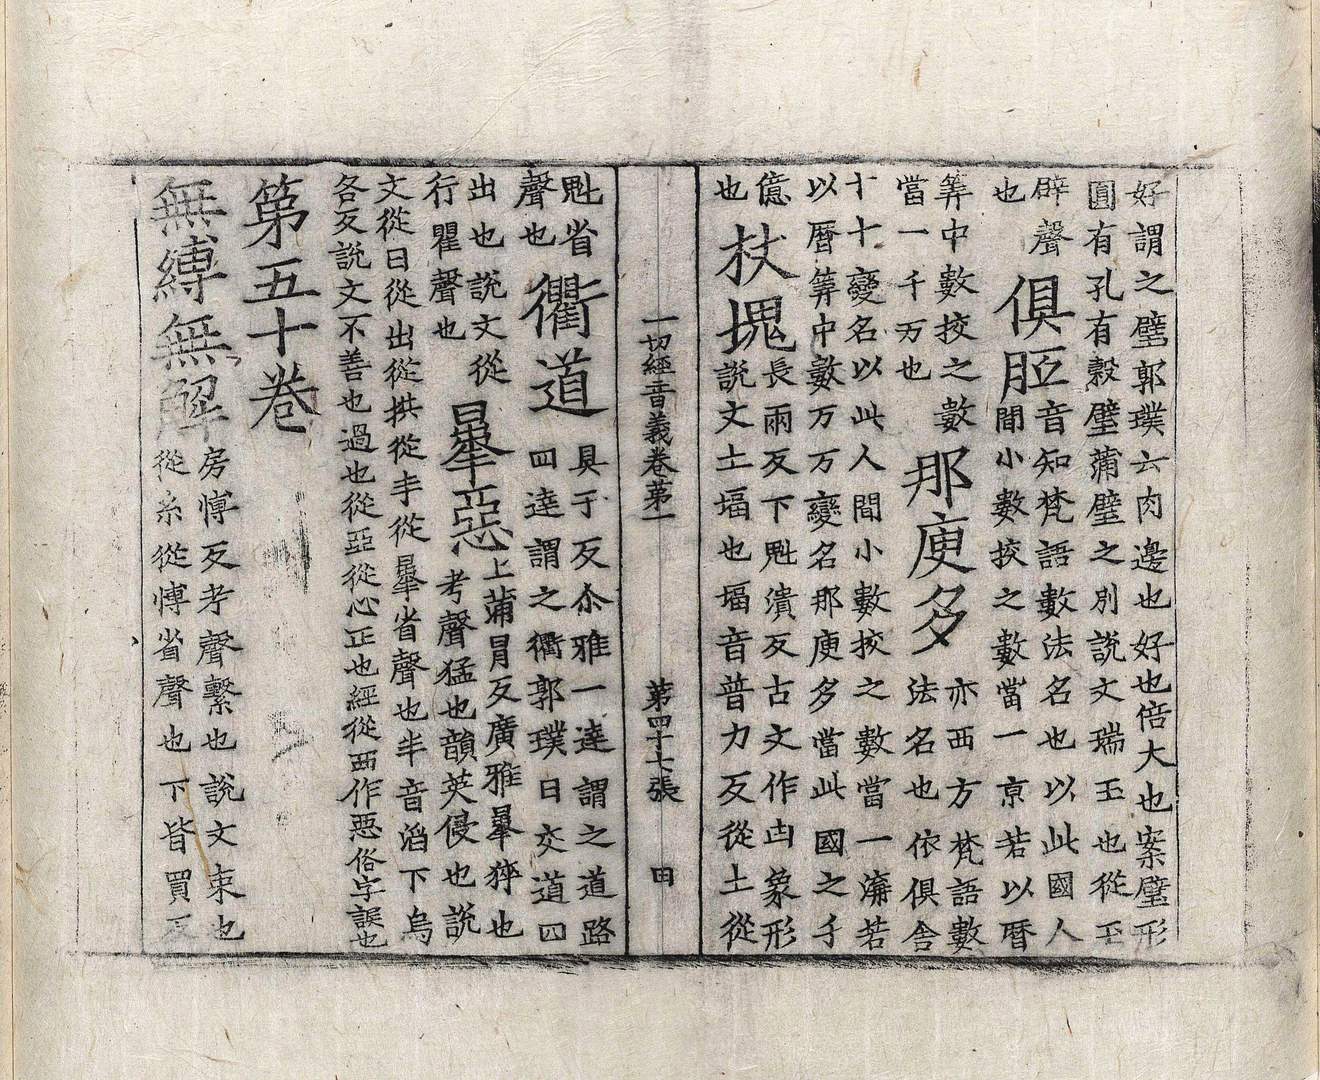 好謂之璧郭璞云肉邊也好也倍大也案璧形
圓有孔有穀璧蒲璧之別說文瑞玉也從玉
辟聲
也
俱胝
音知梵語數法名也以此國人
間小數挍之數當一京若以曆
筭中數挍之數
當一千万也
那庾多
亦西方梵語數
法名也依俱舍
十十變名以此人間小數挍之數當一溝若
以曆筭中數万万變名那庾多當此國之千
億
也
杖塊
長兩反下魁潰反古文作凷象形
說文土塥也塥音普力反從土從
一切經音義卷苐一 第四十七張 田
魁省
聲也
衢道
具于反尒雅一達謂之道路
四達謂之衢郭璞曰交道四
出也說文從
行瞿聲也
㬥惡
上蒲冐反廣雅㬥猝也
考聲猛也韻英侵也說
文從日從出從拱從夲從㬥省聲也夲音滔下烏
各反說文不善也過也從亞從心正也經從西作悪俗字誤也
第五十卷
無縛無解
房愽反考聲繫也說文束也
從糸從愽省聲也下皆買反